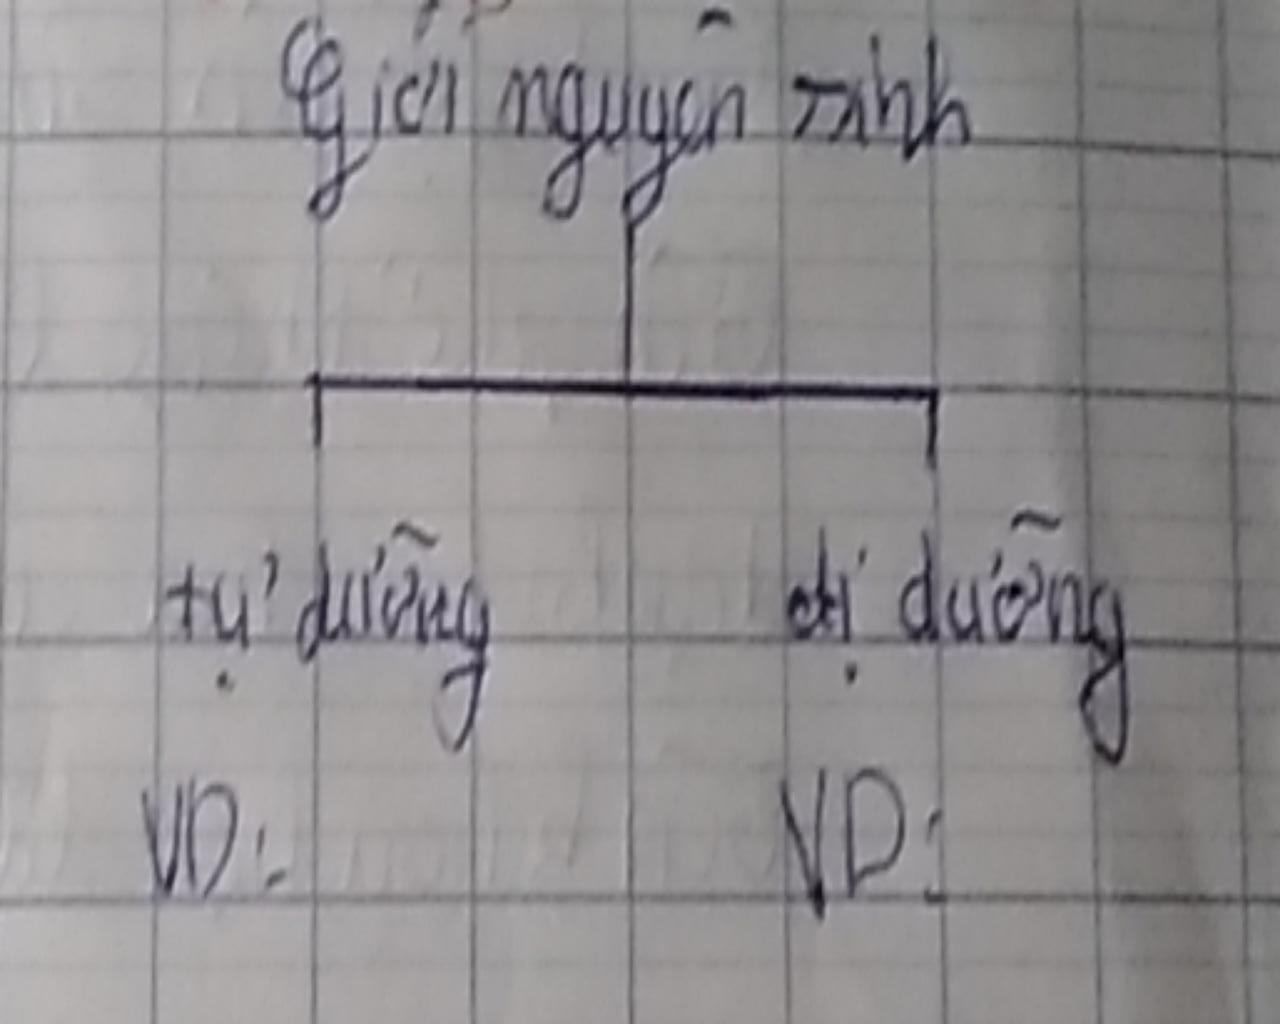 Giới nguyên sinh
tự dưỡng
dị dưỡng
VD:
VD: